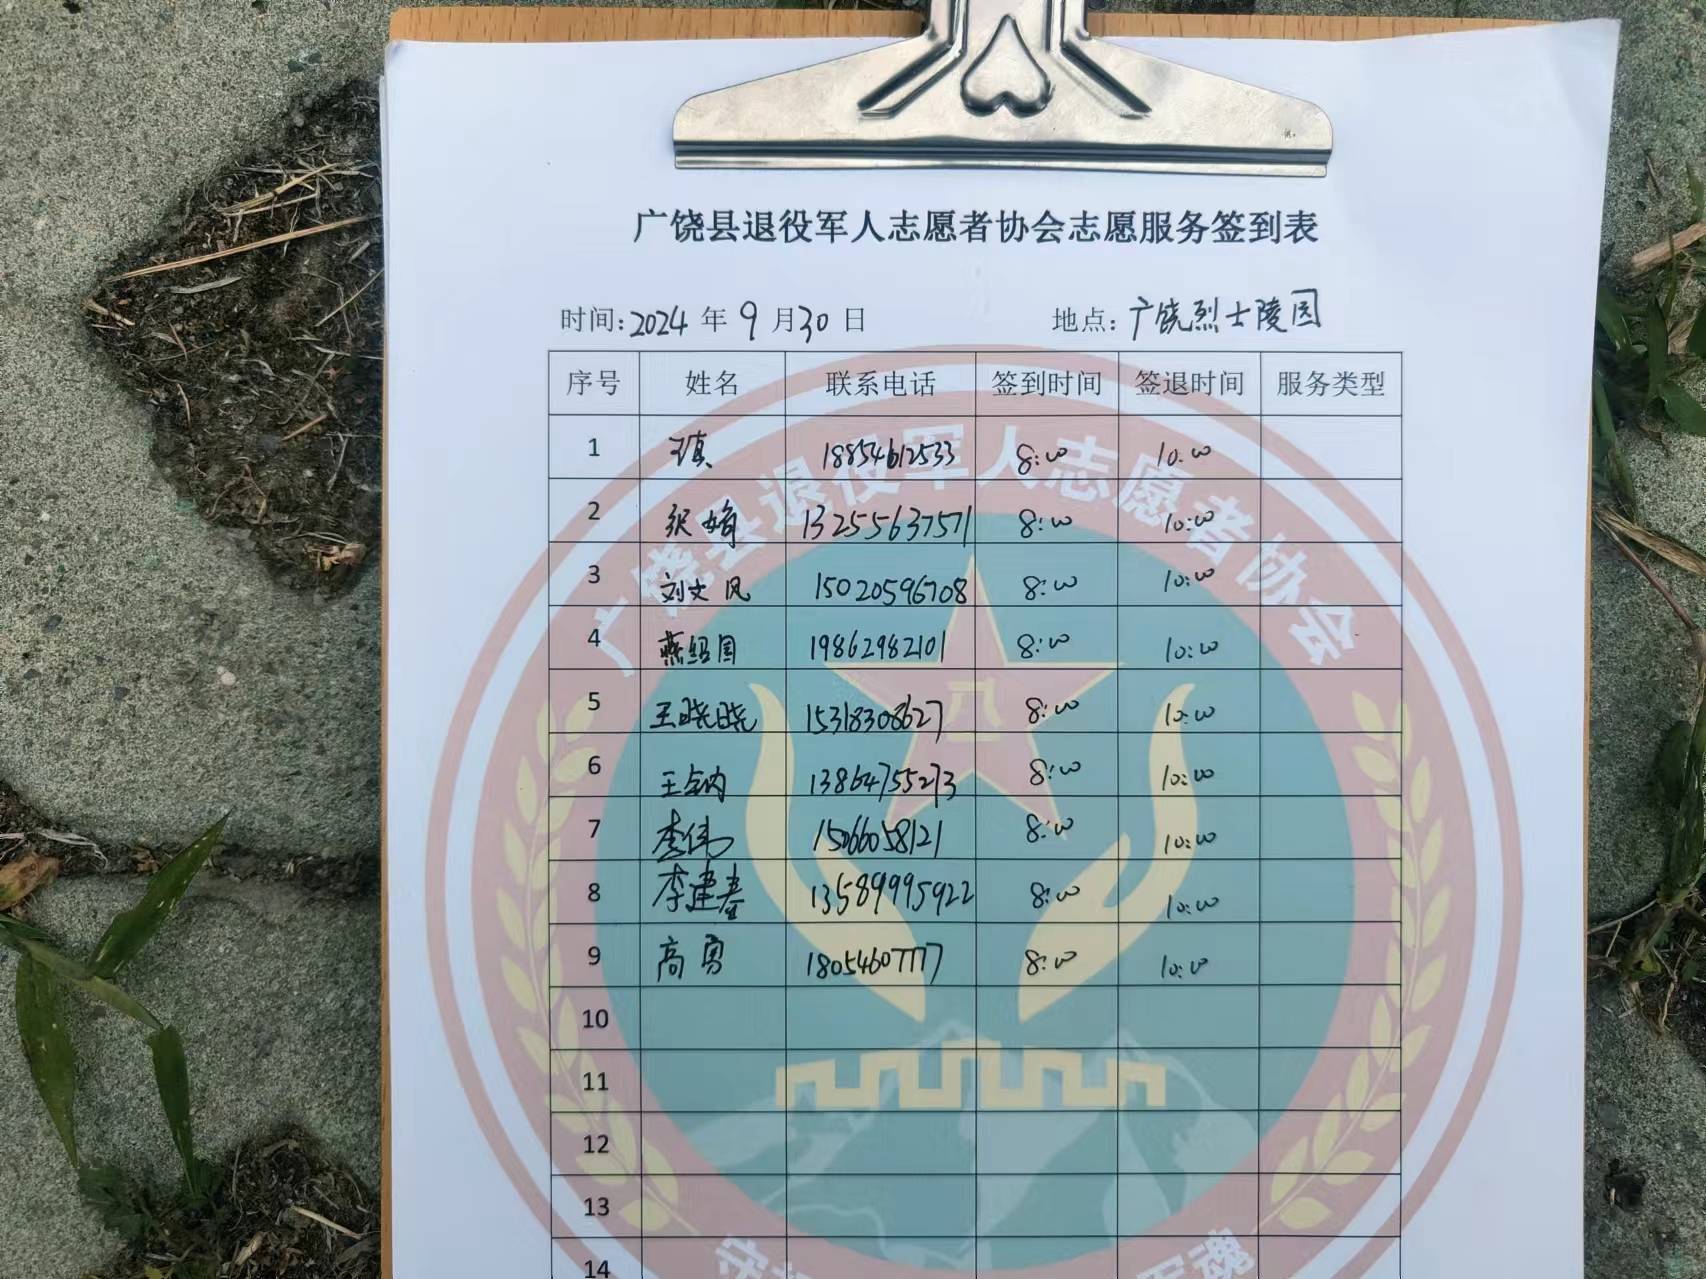 广饶县退役军人志愿者协会志愿服务签到表
时间:2024 年 9 月30 日 地点:广饶烈士陵园
序号 姓名 联系电话 签到时间 签退时间 服务类型
1 18854612533 8:00 10:00
2 张娟 13255637571 8:00 10:00
3 刘文凤 15020596708 8:00 10:00
4 燕绍国 19862982101 8:00 10:00
5 王晓晓 15318308627 8:00 10:00
6 王 13864755273 8:00 10:00
7 李伟 15066058121 8:00 10:00
8 李建春 13589995922 8:00 10:00
9 高勇 18054607777 8:00 10:00
10
11
12
13
14
广饶县退役军人志愿者协会
守 军魂